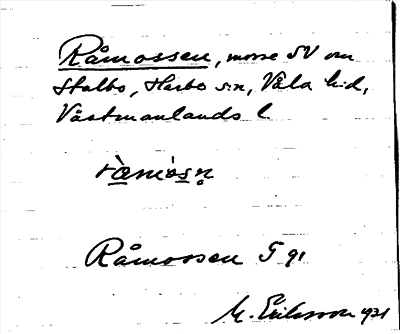 Råmossen, mosse SV om
Stalbo, Harbo s:n, Våla h:d,
Västmanlands l.
ràmós̥n̥
Råmossen G 91
M. Eriksson 1931